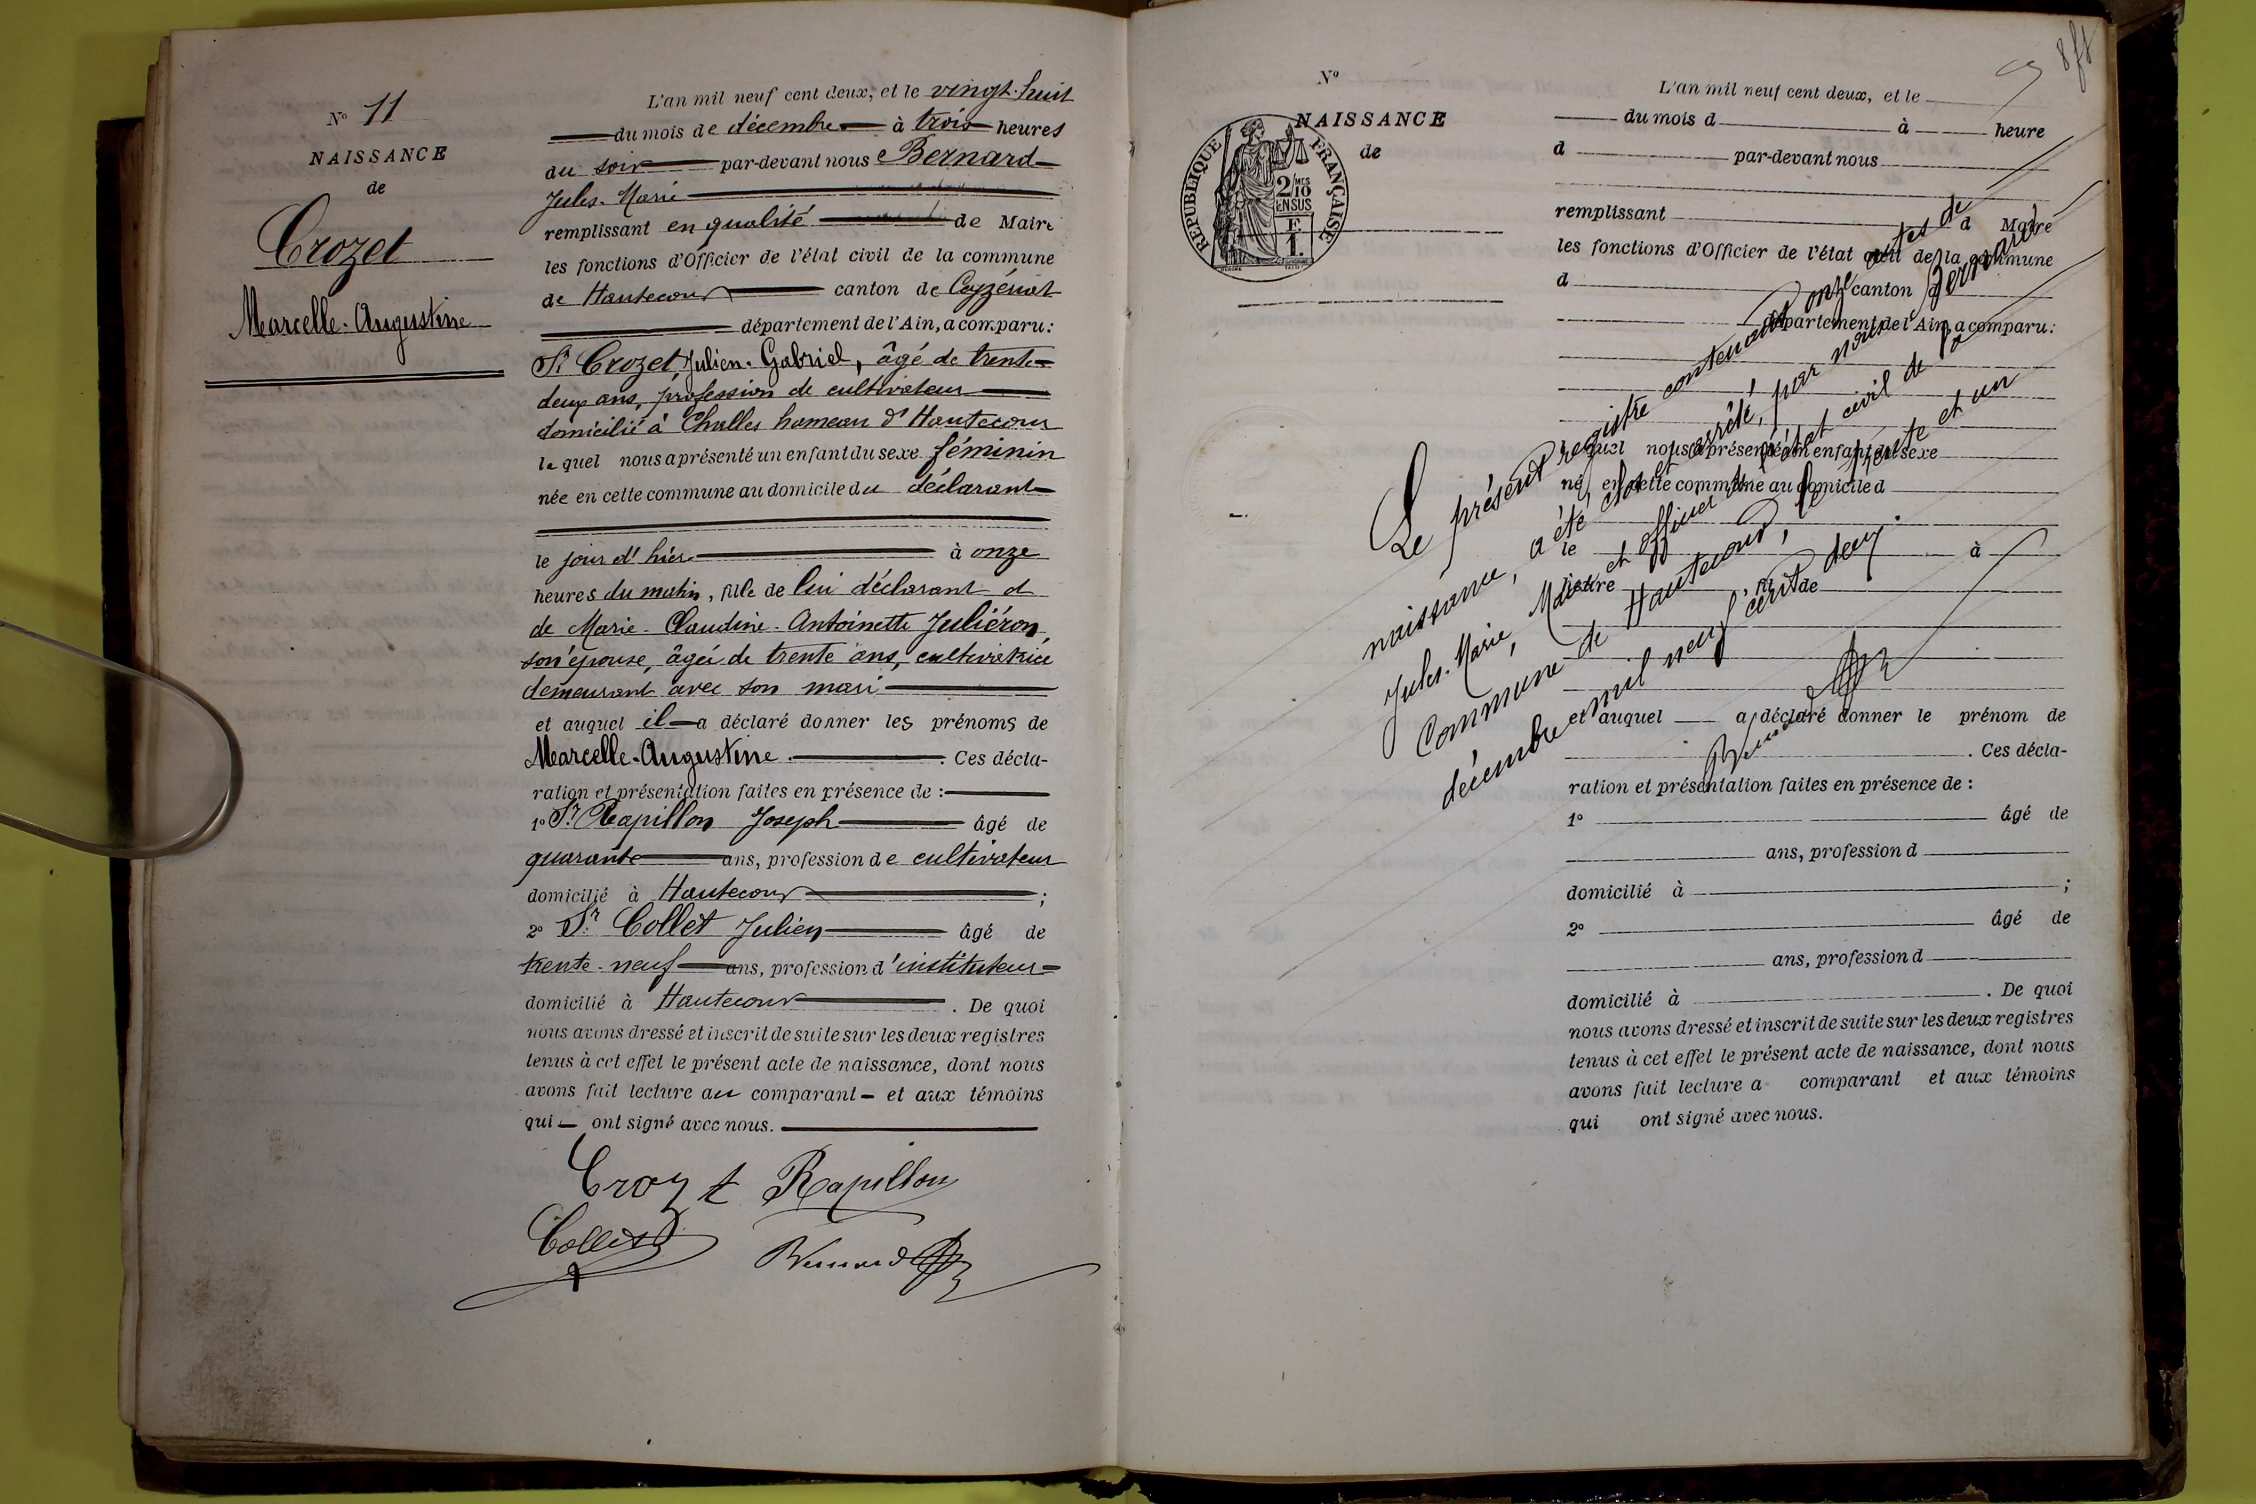 N° 11
NAISSANCE
de
Crozet
Marcelle-Augustine
L'an mil neuf cent deux, et le vingt-huit
du mois de décembre à trois heures
du soir par-devant nous Bernard
Jules-Marie
remplissant en qualité de Maire
les fonctions d'Officier de l'état civil de la commune
de Hautecour canton de Ceyzériat
département de l'Ain, a comparu:
Sr Crozet Julien-Gabriel, âgé de trente-
deux ans, profession de cultivateur
domicilié à Challes hameau d'Hautecour
lequel nous a présenté un enfant du sexe féminin
née en cette commune au domicile du déclarant
le jour d'hier à onze
heures du matin, fille de lui déclarant et
de Marie-Claudine-Antoinette Juliéron,
son épouse, âgée de trente ans, cultivatrice
demeurant avec son mari
et auquel il a déclaré donner les prénoms de
Marcelle-Augustine. Ces décla-
ration et présentation faites en présence de :
1° Sr Rapillon Joseph âgé de
quarante ans, profession de cultivateur
domicilié à Hautecour ;
2° Sr Collet Julien âgé de
trente-neuf ans, profession d'instituteur
domicilié à Hautecour. De quoi
nous avons dressé et inscrit de suite sur les deux registres
tenus à cet effet le présent acte de naissance, dont nous
avons fait lecture au comparant et aux témoins
qui ont signé avec nous.
Crozet Rapillon
Collet Bernard
N°
NAISSANCE
de
REPUBLIQUE FRANÇAISE
2/10
MES
EN SUS
F
1
L'an mil neuf cent deux, et le
du mois d à heure
d par-devant nous
remplissant d Maire
les fonctions d'Officier de l'état civil de la commune
d canton d
département de l'Ain, a comparu:
quel nous a présenté un enfant du sexe
né en cette commune au domicile d
le à
heure , fil de
et auquel a déclaré donner le prénom de
. Ces décla-
ration et présentation faites en présence de :
1° âgé de
ans, profession d
domicilié à ;
2° âgé de
ans, profession d
domicilié à . De quoi
nous avons dressé et inscrit de suite sur les deux registres
tenus à cet effet le présent acte de naissance, dont nous
avons fait lecture a comparant et aux témoins
qui ont signé avec nous.
Le présent registre contenant onze actes de
naissance, a été clos et arrêté, par nous Bernard
Jules-Marie, Maire et officier de l'état civil de la
Commune de Hautecour, le trente et un
décembre mil neuf cent deux.
Bernard